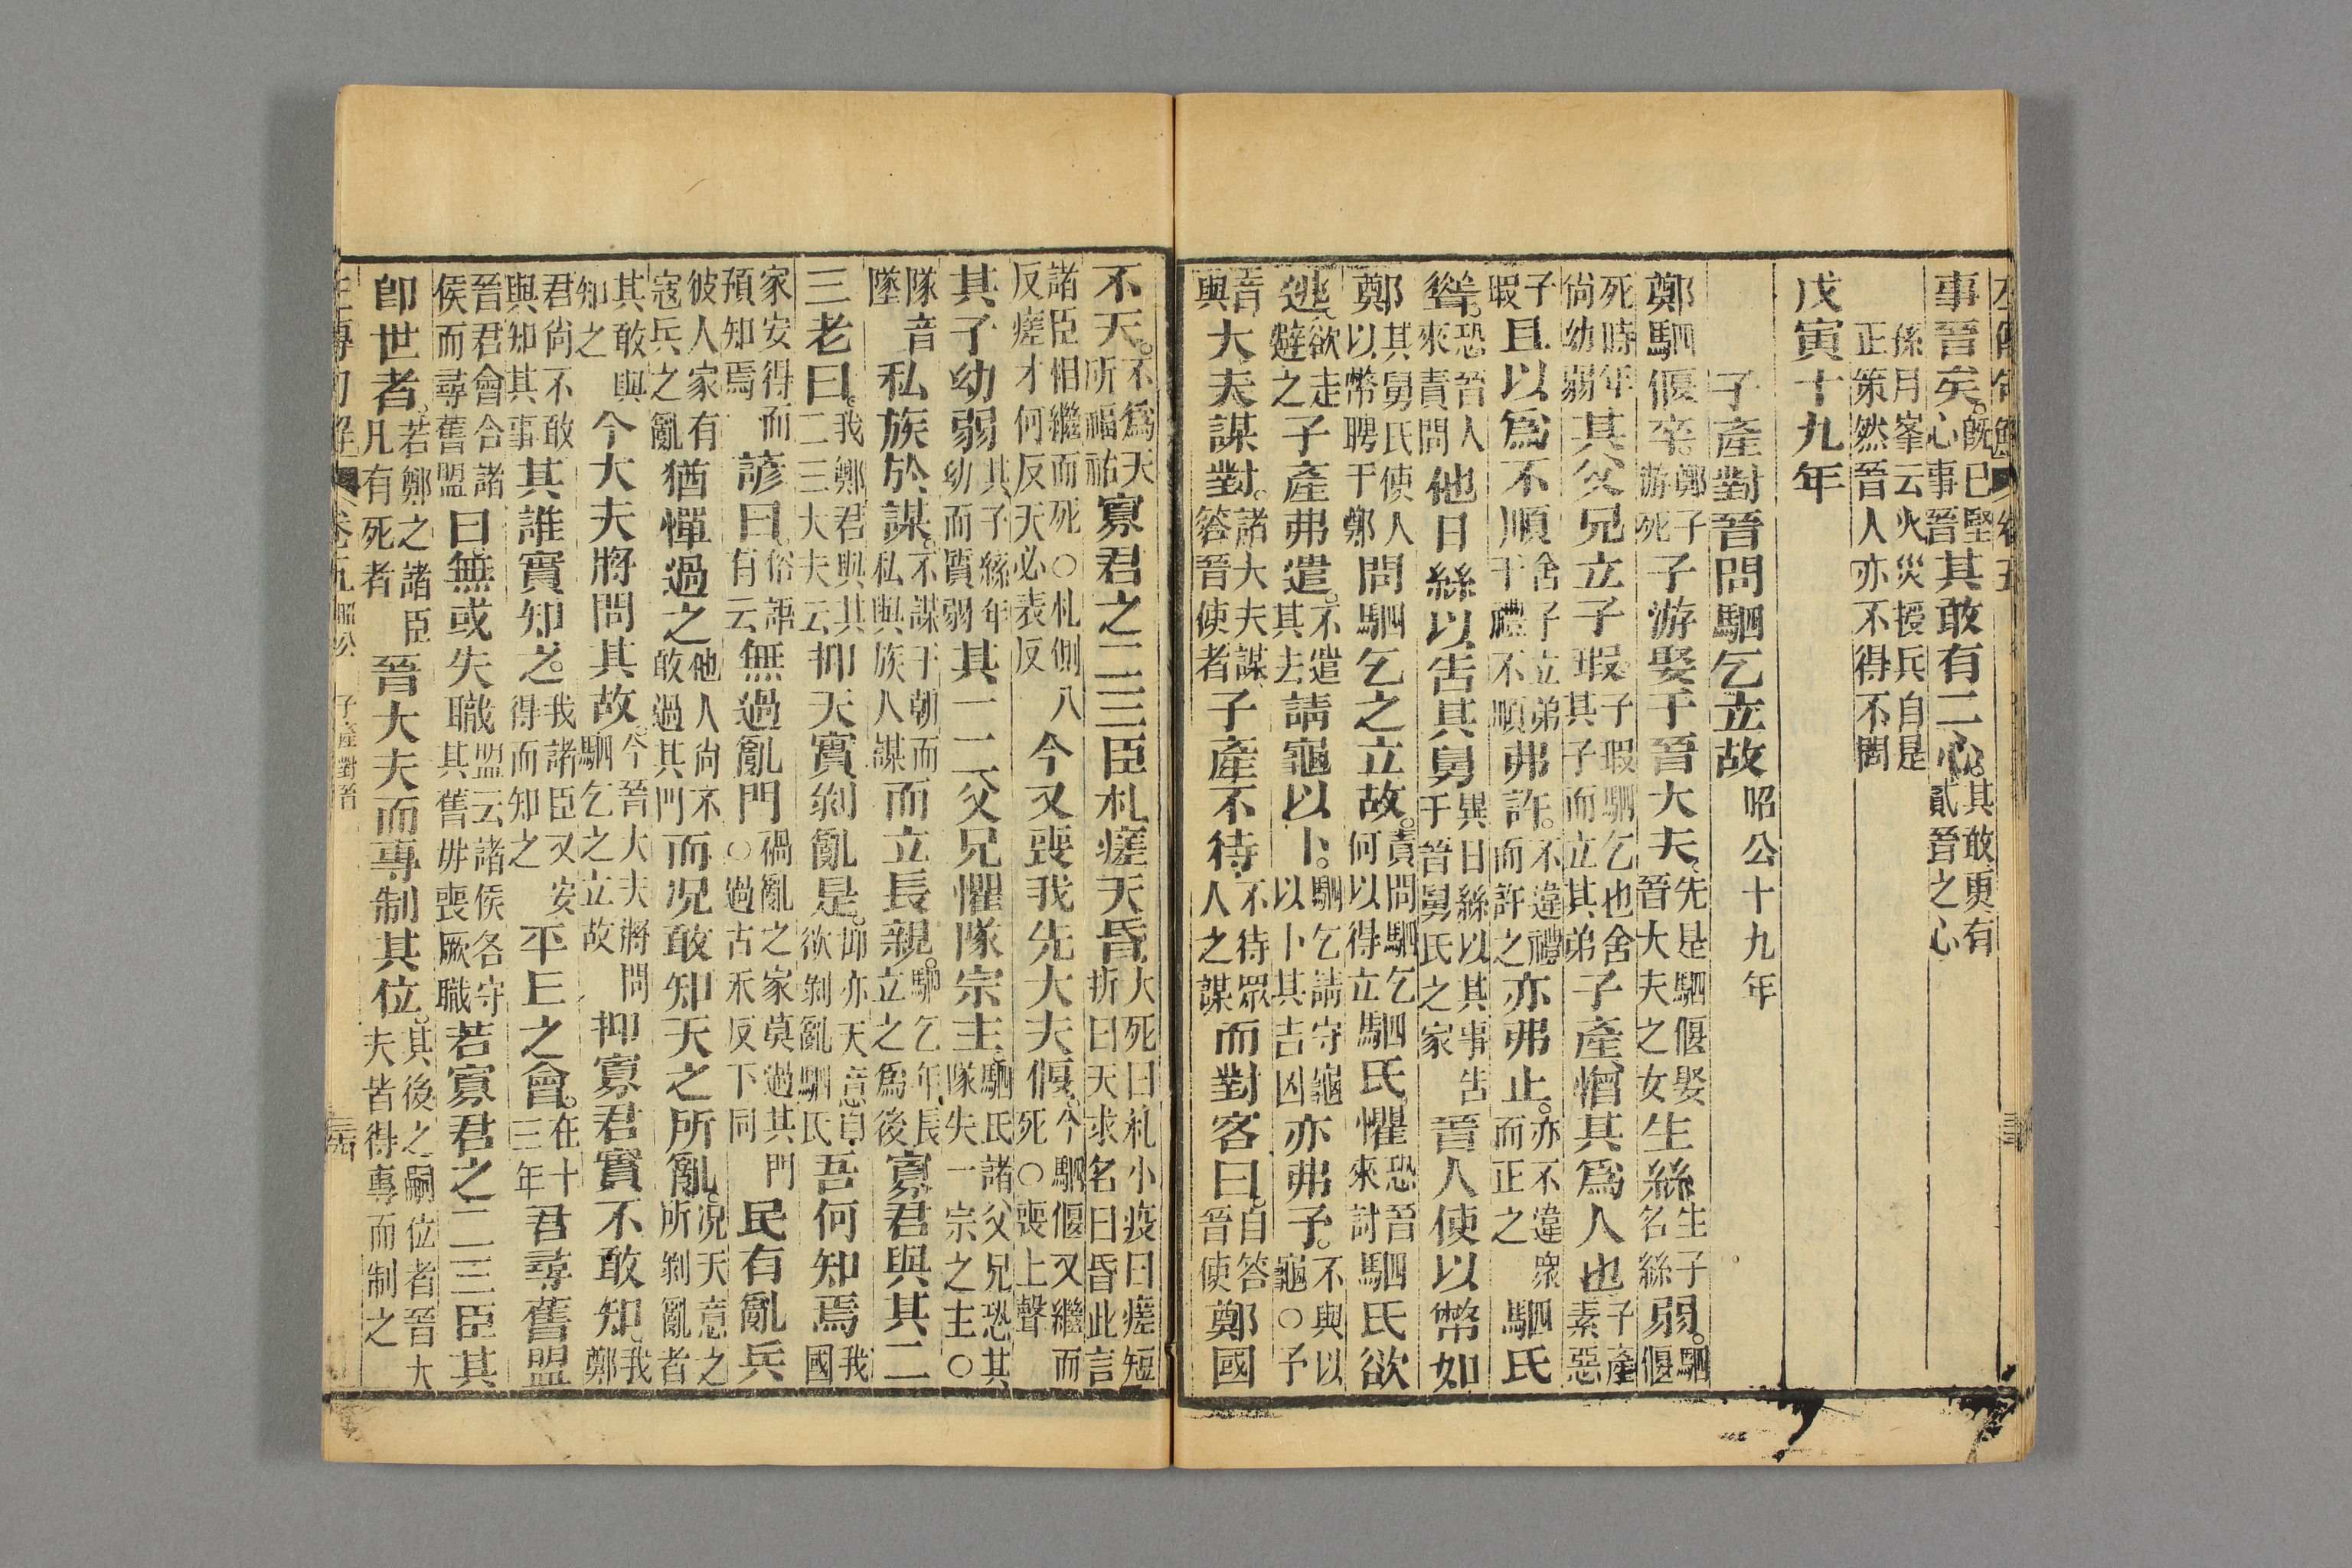 事晉矣。既已堅心事晉其敢有二心。其敢更有貳晉之心
孫月峯云火災授兵自是正策然晉人亦不得不問
戊寅十九年
子產對晉問駟乞立故 昭公十九年
鄭駟偃卒。鄭子游死子游娶于晉大夫。先是駟偃娶晉大夫之女生絲生子名絲弱。駟偃
死時年尚幼弱其父兄立子瑕子瑕駟乞也舍其子而立其弟子產憎其為人也子產素惡
子瑕且以為不順舍子立弟于禮不順弗許。不違禮而許之亦弗止。亦不違衆而正之駟氏
聳。恐晉人來責問他日絲以告其舅異日絲以其事告于晉舅氏之家晉人使以幣如
鄭其舅氏使人以幣聘于鄭問駟乞之立故。責問駟乞何以得立駟氏懼恐晉來討駟氏欲
逃欲走避之子產弗遣。不遣其去請龜以卜。駟乞請守龜以卜其吉凶亦弗予。不與以龜○予
音與大夫謀對。諸大夫謀答晉使者子產不待不待眾人之謀而對客曰。自答晉使鄭國
不天。不為天所福祐寡君之二三臣札瘥夭昏大死曰札小疫曰瘥短折曰夭未名曰昏此言
諸臣相繼而死○札側八反瘥才何反夭必表反今又喪我先大夫偃。今駟偃又繼而死○喪上聲
其子幼弱其子絲年幼而質弱其一二父兄懼隊宗主駟氏諸父兄恐其隊失一宗之主○
隊音墜私族於謀。不謀于朝而私與族人謀而立長親。駟乞年長立之為後寡君與其二
三老曰。我鄭君與其二三大夫云抑天實剝亂是。抑亦天意自欲剝亂駟氏吾何知焉我國
家安得而預知焉諺曰。俗語有云無過亂門禍亂之家莫過其門○過古禾反下同民有亂兵
彼人家有寇兵之亂猶憚過之他人尚不敢過其門而況敢知天之所亂。況天意之所剝亂者
其敢與知之今大夫將問其故。今晉大夫將問駟乞之立故抑寡君實不敢知。我鄭
君尚不敢與知其事其誰實知之。我諸臣又安得而知之平丘之會。在十三年君尋舊盟
晉君會合諸侯而尋舊盟曰無或失職盟云諸侯各守其舊毋喪厥職若寡君之二三臣其
即世者。若鄭之諸臣凡有死者晉大夫而專制其位。其後之嗣位者晉大夫若得專而制之